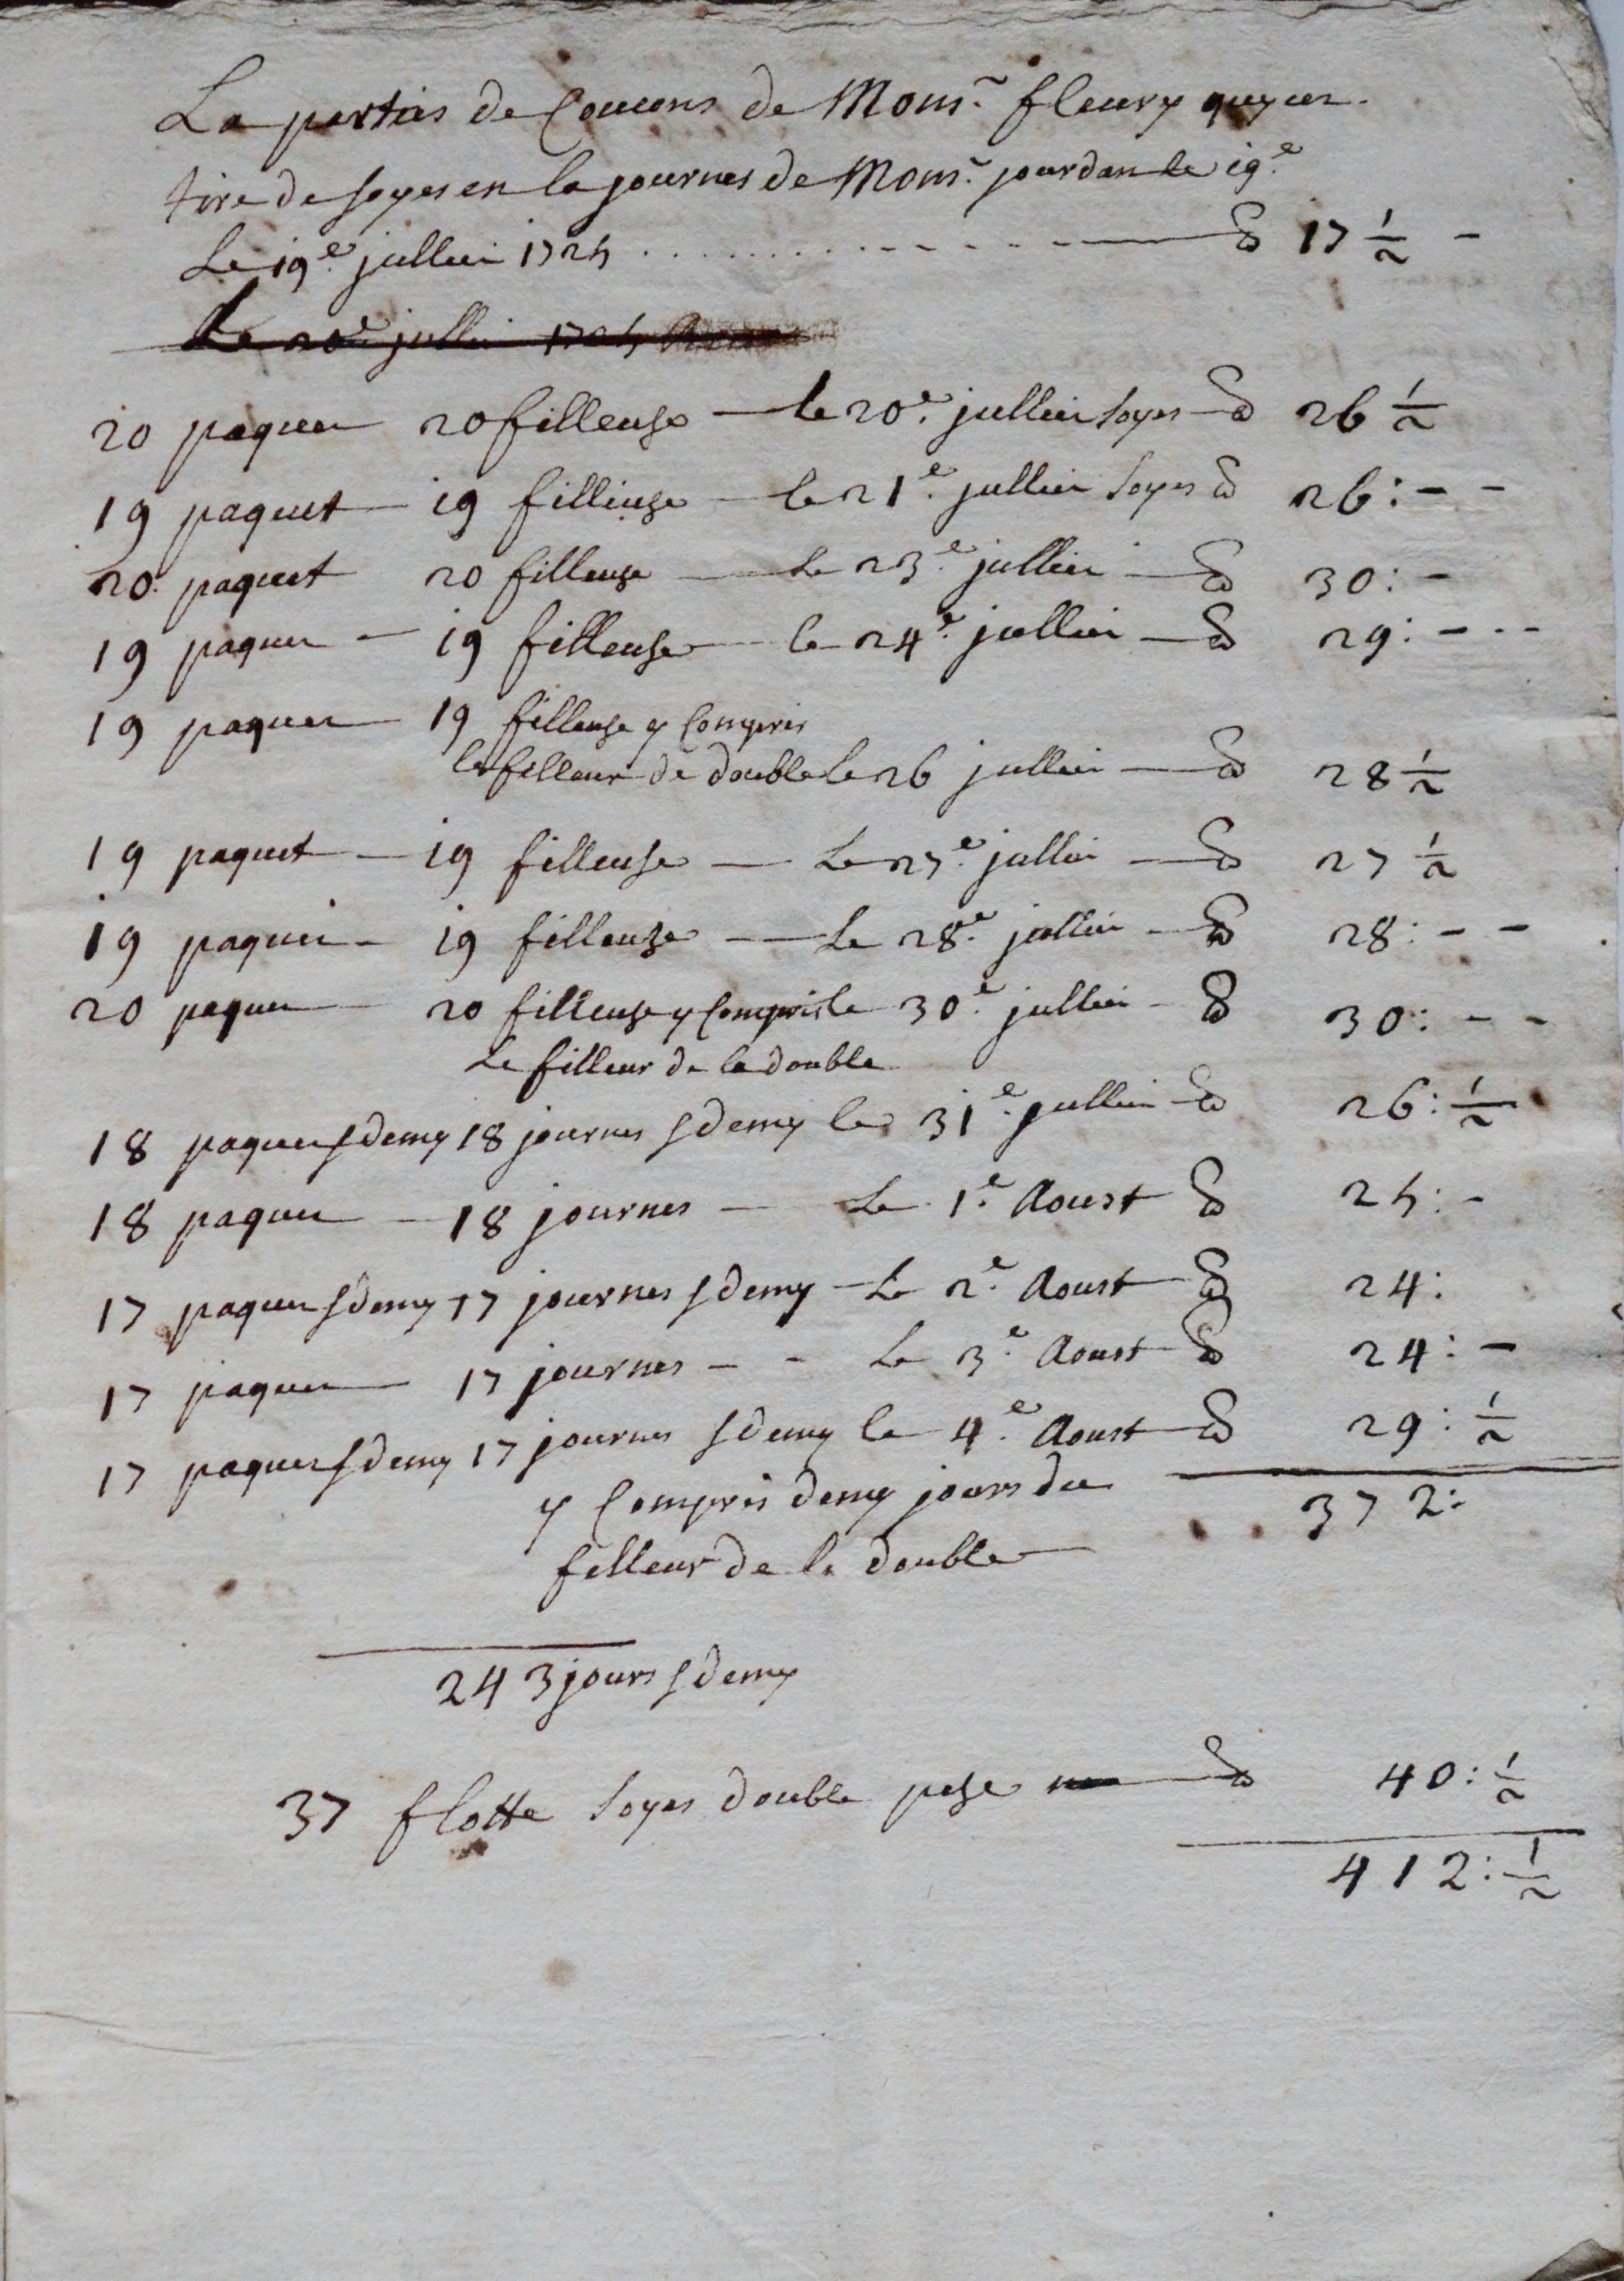 La parties de Coucons de Mons.r fleury
tire de soyes en la journes de Mons.r jourdan le 19.e
Le 19.e jullier 1725 . . . . . . . . - - - - - — lb 17 1/2 -
Le 20e jullier 1725
20 paquer 20 filleuse — le 20.e jullier soyes — lb 26 1/2
19 paquet — 19 filleuse — le 21.e jullier soyes lb 26 : - -
20. paquet 20 filleuse — Le 23.e jullier — lb 30 : -
19 paquer — 19 filleuse — le 24.e jullier — lb 29 : - - -
19 paquer — 19 filleuse y Compris
le filleur de double le 26 jullier — lb 28 1/2
19 paquet — 19 filleuse — Le 27.e jullier — lb 27 1/2
19 paquer - 19 filleuse — Le 28.e jullier — lb 28 : - -
20 paquer — 20 filleuse y Compris le 30.e jullier - lb 30 : - -
Le filleur de la double
18 paquer s demy 18 journes s demy le 31.e jullier — lb 26 : 1/2
18 paquer — 18 journes — Le 1.e Aoust lb 25 : -
17 paquer s demy 17 journes s demy — Le 2.e Aoust — lb 24 :
17 paquer — 17 journes - - Le 3.e Aoust — lb 24 : -
17 paquer s demy 17 journes s demy le 4.e Aoust — lb 29 : 1/2
y Compris demy jours du 372 :
filleur de la double
243 jours s demy
37 flotte soyes double pese — lb 40 : 1/2
412 : 1/2